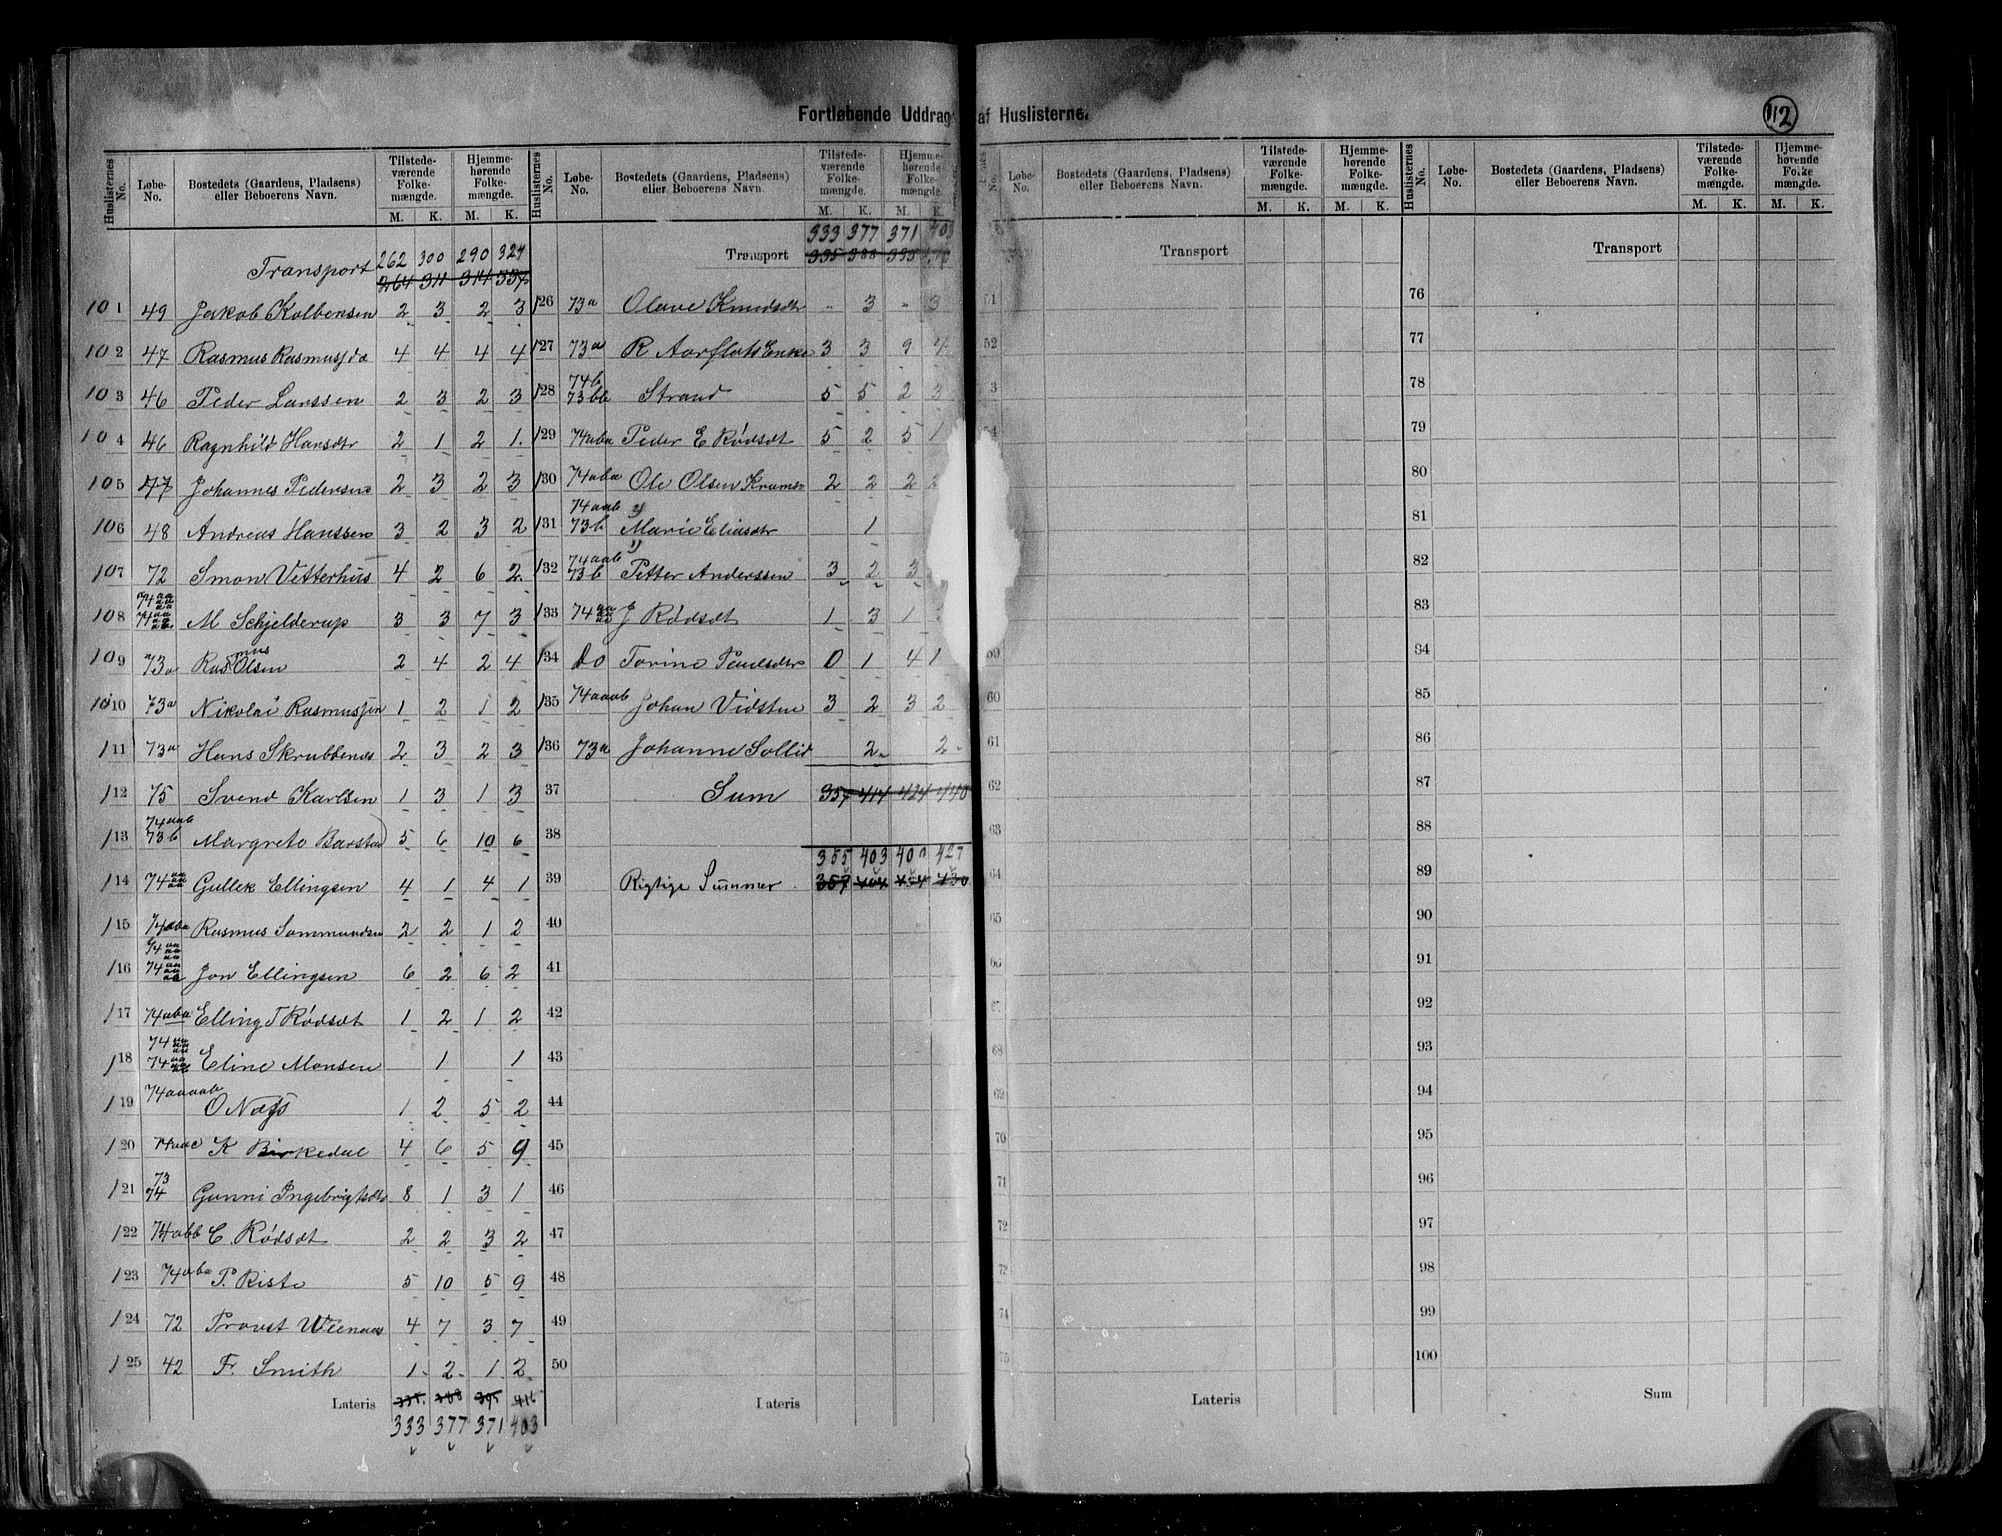 Fortløbende Uddrag af Huslisterne.
112
Huslisternes No. | Løbe-No. | Bostedets (Gaardens, Pladsens) eller Beboerens Navn. | Tilstede-værende Folke-mængde. M. K. | Hjemme-hørende Folke-mængde. M. K.
Transport 262 300 290 324
101 49 Jakob Kolbensen 2 3 2 3
102 47 Rasmus Rasmussen 4 4 4 4
103 46 Peder Larssen 2 3 2 3
104 46 Ragnhild Hansdtr 2 1 2 1.
105 47 Johannes Pedersen 2 3 2 3
106 48 Andreas Hanssen 3 2 3 2
107 72 Smon Vetterhus 4 2 6 2
108 M Schjelderup 3 3 7 3
109 73a Rasmus Olsen 2 4 2 4
110 73a Nikolai Rasmussen 1 2 1 2
111 73a Hans Skrubbenes 2 3 2 3
112 75 Svend Karlsen 1 3 1 3
113 74aab 73b Margrete Barstad 5 6 10 6
114 Gullek Ellingsen 4 1 4 1
115 74aba Rasmus Sammundsen 2 2 1 2
116 Jon Ellingsen 6 2 6 2
117 74aba Elling T Rødsæt 1 2 1 2
118 Eline Monsen 1 1
119 74aaaab O Næss 1 2 5 2
120 74aac K Birkedal 4 6 5 9
121 73 74 Gunni Ingebrigtsdtr 8 1 3 1
122 74abb C. Rødsæt 2 2 3 2
123 74aba P. Riste 5 10 5 9
124 72 Provst Wienaas 4 7 3 7
125 42 Fr. Smith 1 2 1 2
Lateris 335 388 395 416
333 377 371 403
Huslisternes No. | Løbe-No. | Bostedets (Gaardens, Pladsens) eller Beboerens Navn. | Tilstede-værende Folke-mængde. M. K. | Hjemme-hørende Folke-mængde. M. K.
333 377 371 403
Transport 335 388
126 73a Olave Knudsdtr 3 3
127 73a R Aarflots Enke 3 3 9 4
128 74b 73bb Strand 5 5 2 3
129 74aba Peder E Rødsæt 5 2 5 1
130 74aba Ole Olsen Kramer 2 2 2 2
131 74aab 73b Marie Eliasdtr 1
132 74aab 73b Petter Anderssen 3 2 3
133 J Rødsæt 1 3 1
134 do Torine Paulsdtr 0 1 4 1
135 74aaab Johan Vidstue 3 2 3 2
136 73a Johanne Sollid 2 2
37 Sum 357 414 424 440
38
355 403 400 427
39 Rigtige Summer 357
40
41
42
43
44
45
46
47
48
49
50
Lateris
Løbe-No. | Bostedets (Gaardens, Pladsens) eller Beboerens Navn. | Tilstede-værende Folke-mængde. M. K. | Hjemme-hørende Folke-mængde. M. K.
Transport
51
52
59
60
61
62
63
64
65
66
68
69
70
71
72
74
75
Lateris
Huslisternes No. | Løbe-No. | Bostedets (Gaardens, Pladsens) eller Beboerens Navn. | Tilstede-værende Folke-mængde. M. K. | Hjemme-hørende Folke mængde. M. K.
Transport
76
77
78
79
80
81
82
83
84
85
86
87
88
89
90
91
92
93
94
95
96
97
98
99
100
Sum